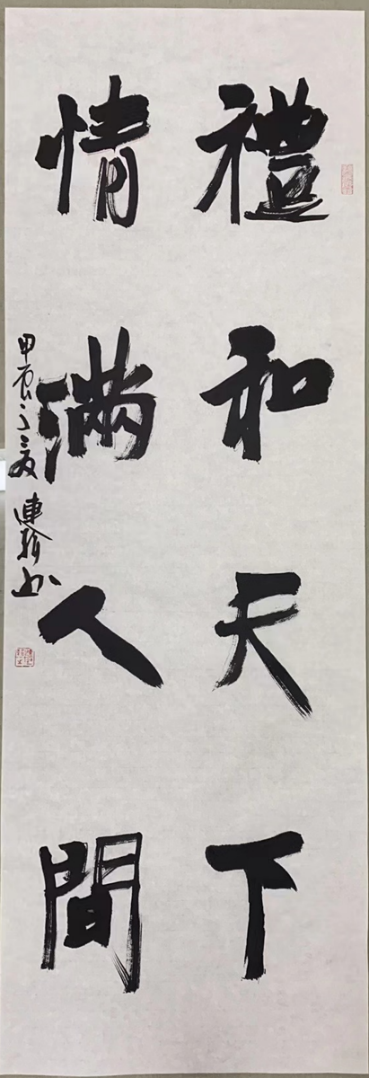 禮和天下
情滿人間
甲辰之夏 連